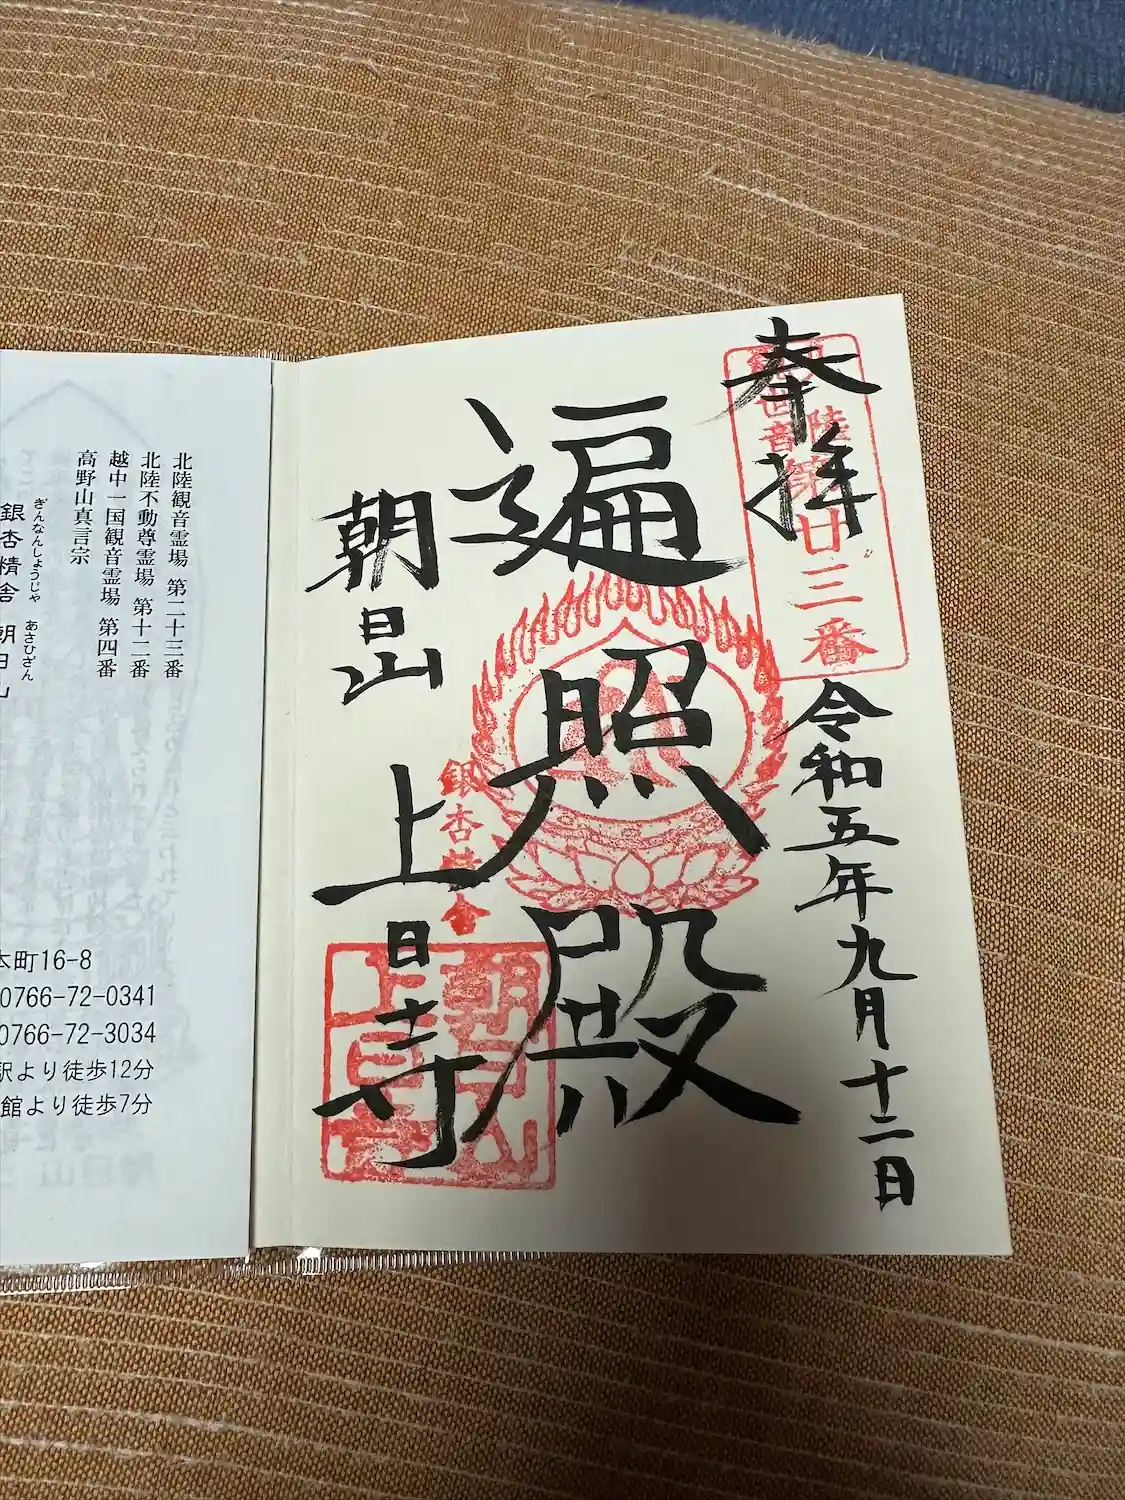 奉拝
令和五年九月十二日
遍照殿
朝日山
上日寺
観世音
陸第廿三番
銀杏精舎
朝日山
上日寺
北陸観音霊場 第二十三番
北陸不動尊霊場 第十二番
越中一国観音霊場 第四番
高野山真言宗
ぎんなんしょうじゃ あさひざん
銀杏精舎 朝日山
本町16-8
0766-72-0341
0766-72-3034
駅より徒歩12分
館より徒歩7分